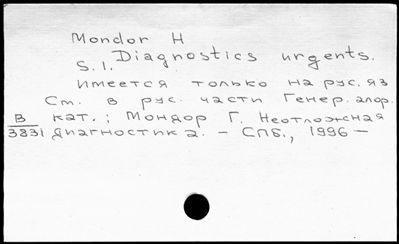 Mondor H
Diagnostics urgents.
S.l.
имеется только на рус. яз
См. в рус. части Генер. алф.
кат.: Мондор Г. Неотложная
диагностика. - СПб., 1996 -
В
3831